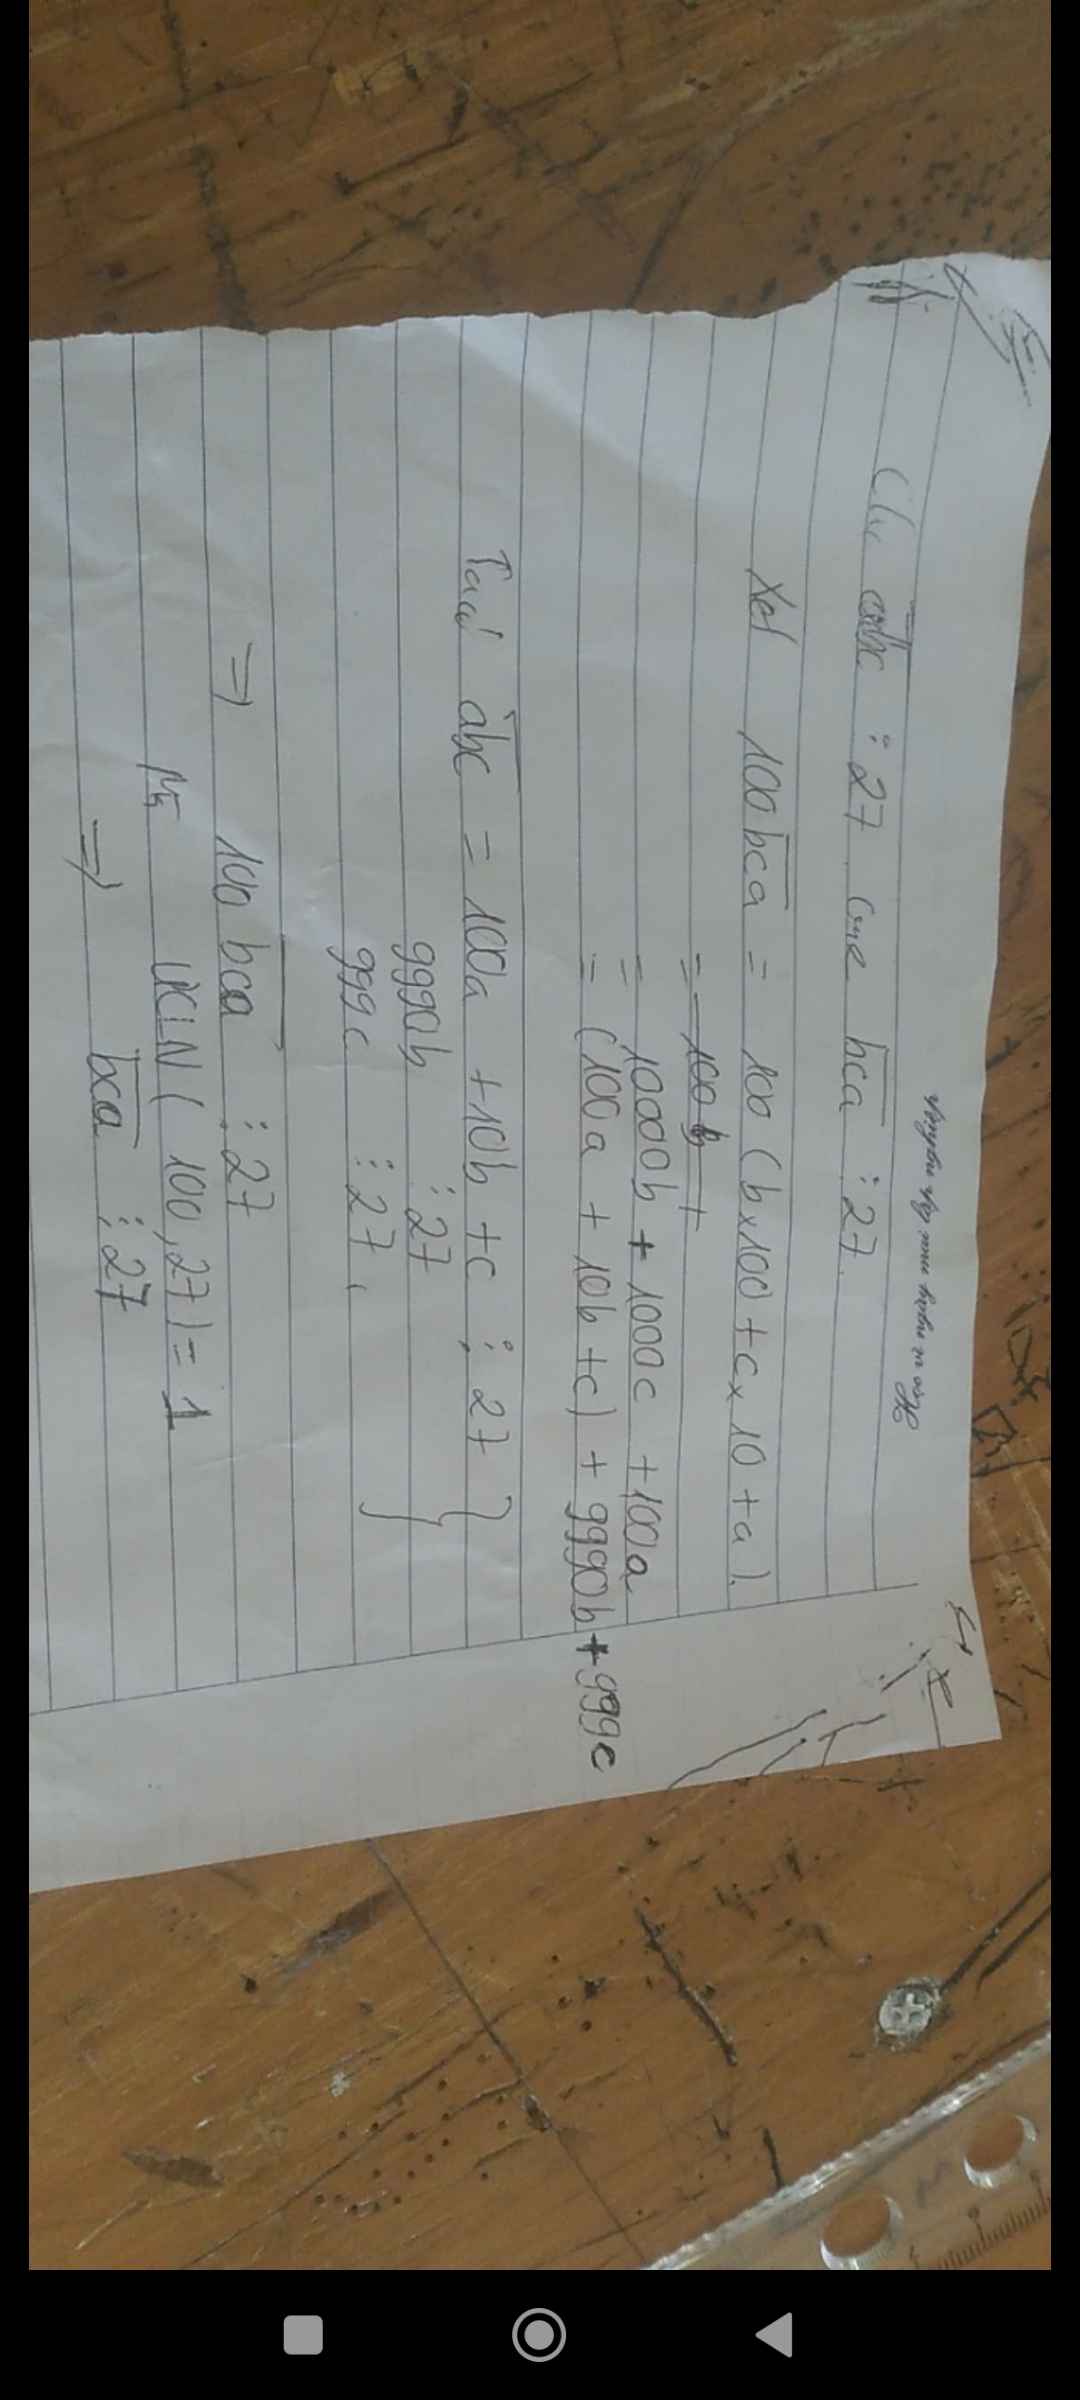 Cho abc ⋮ 27 cmr bca ⋮ 27.
Xét 100bca = 100 (b×100 + c×10 + a).
= 100b +
= 10000b + 1000c + 100a
= (100a + 10b + c) + 9990b + 999c
Ta có abc = 100a + 10b + c ⋮ 27 }
9990b ⋮ 27
999c ⋮ 27 ,
=> 100 bca ⋮ 27
Mà ƯCLN ( 100, 27 ) = 1
=> bca ⋮ 27